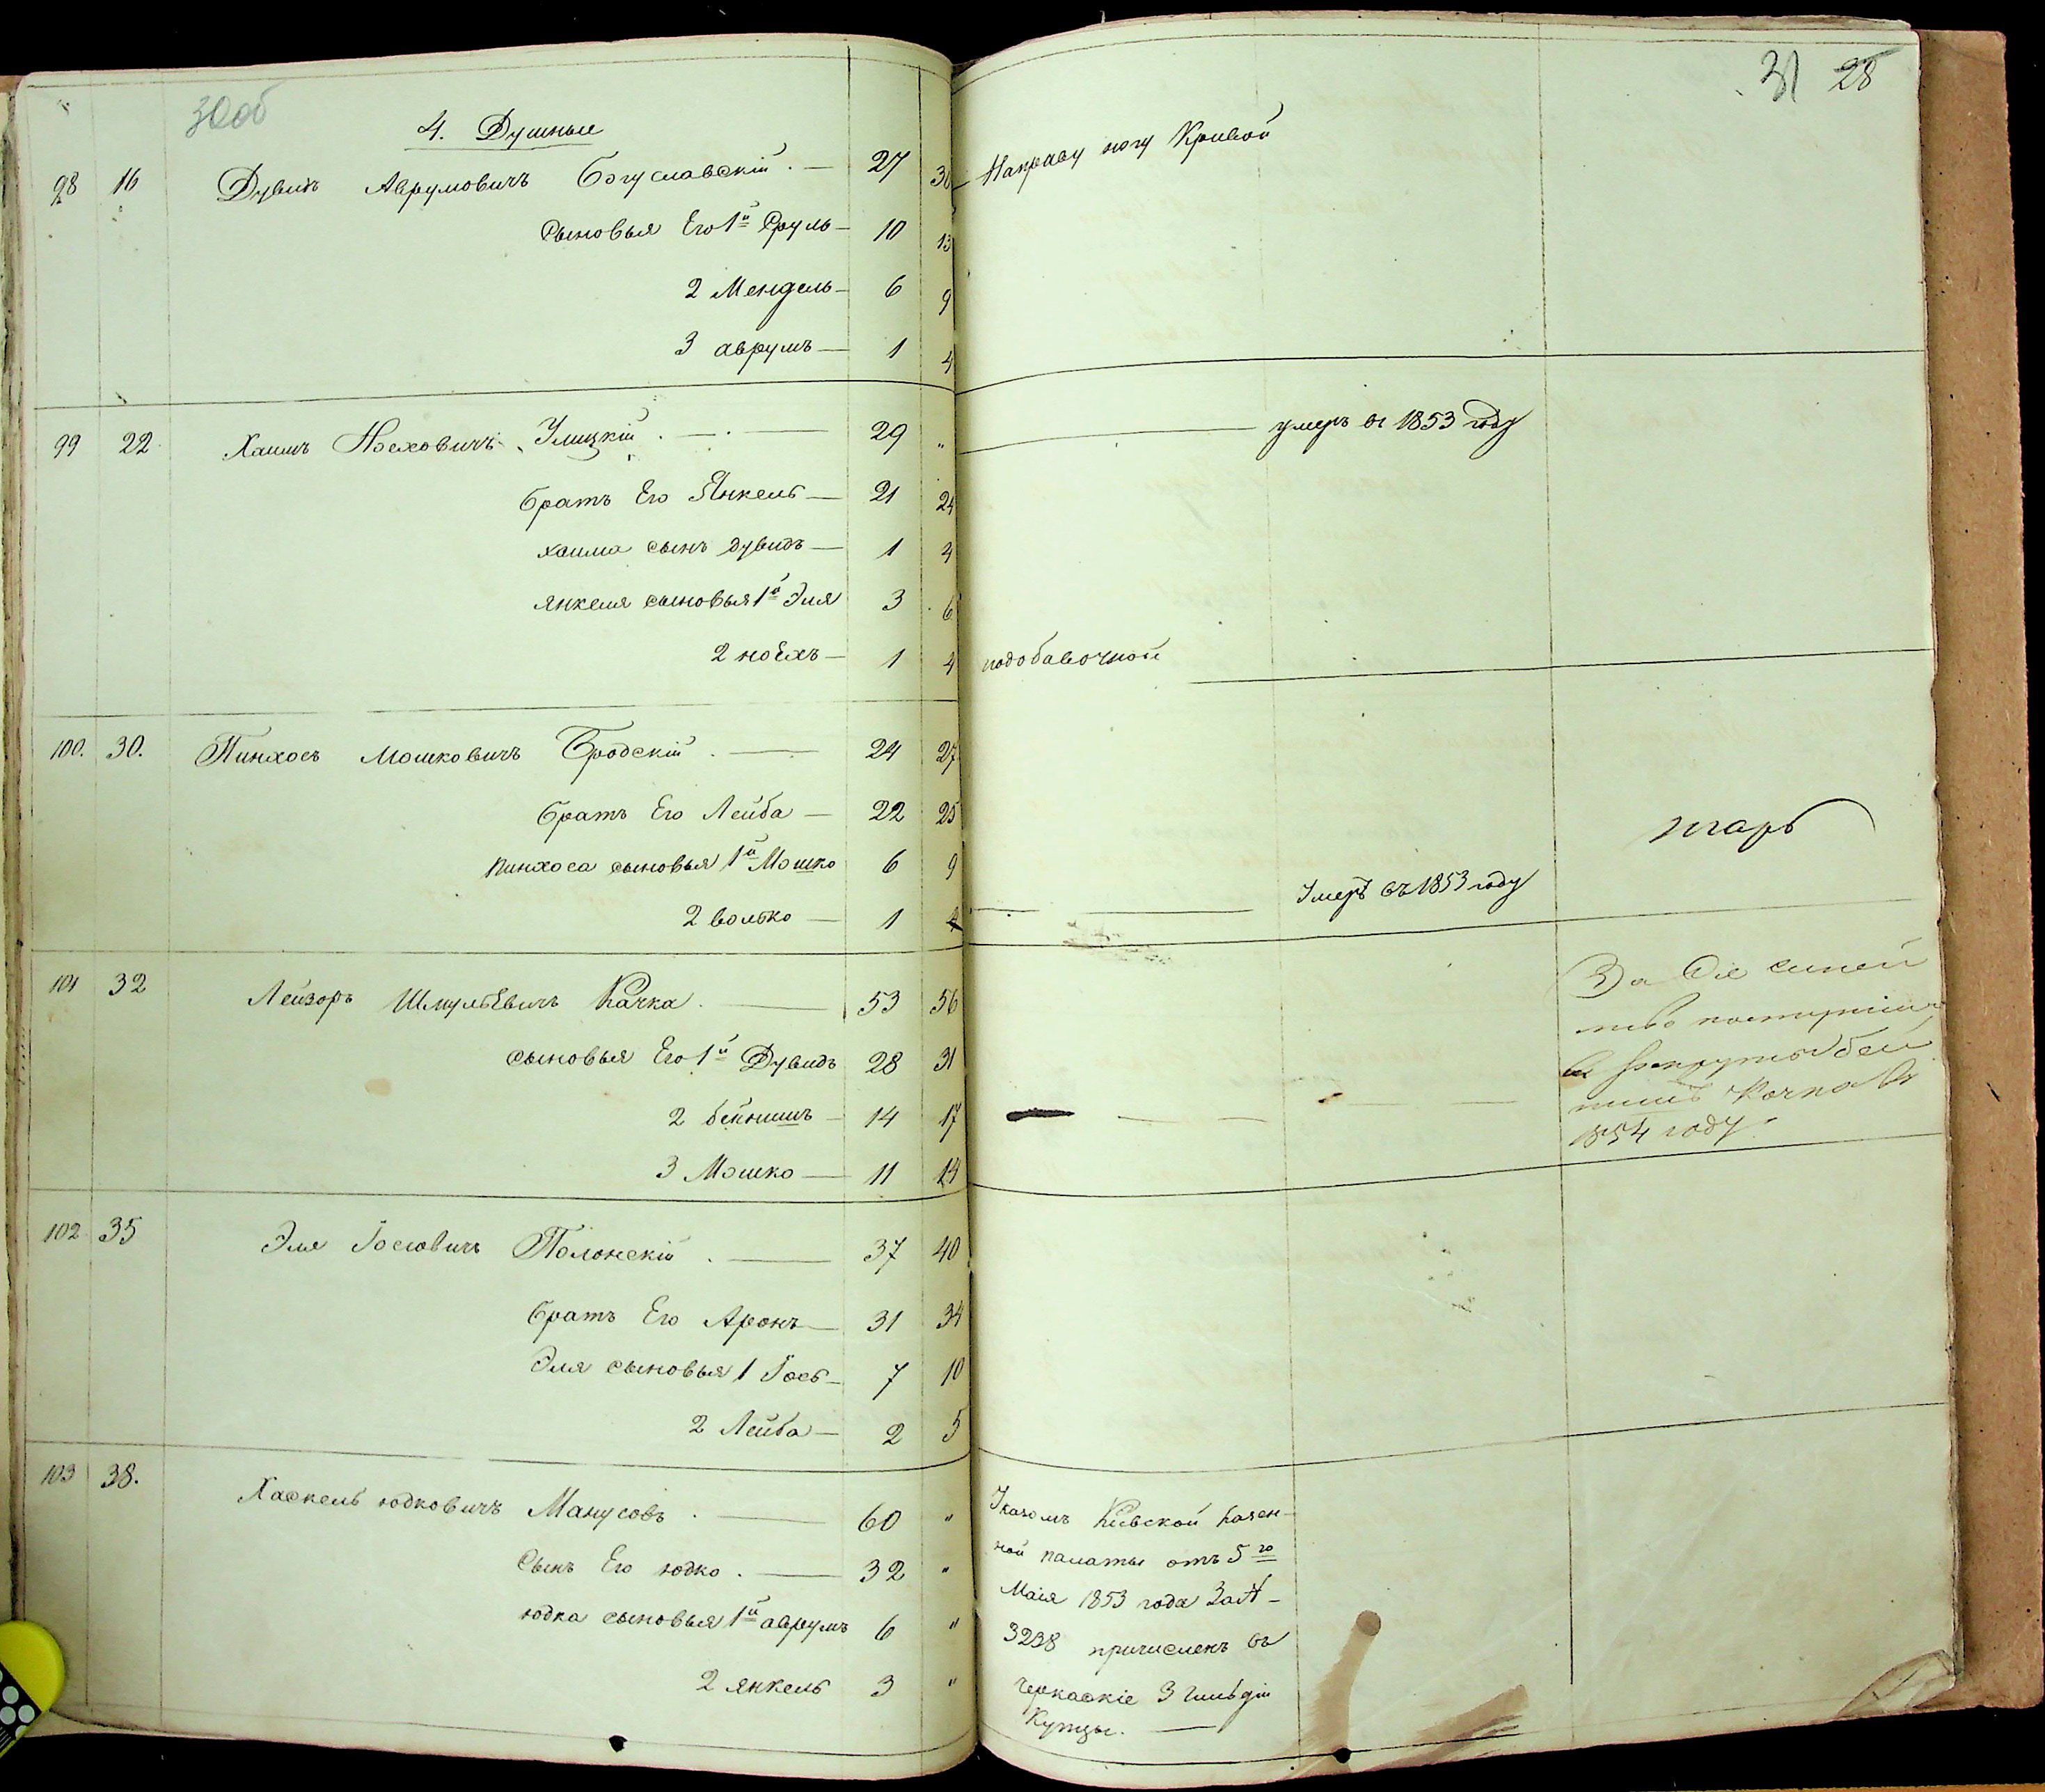 30об
31 28
4. Душные
98 16 Дувидъ Аврумовичъ Богуславскій. — 27 30 — Направу ногу Кривой
Сыновья Его 1й Сруль — 10 13
2 Мендель — 6 9
3 аврумъ — 1 4
99 22 Хаимъ Ноеховичъ Улицкій. — . — 29 " — умеръ въ 1853 году
братъ Его Янкель — 21 24
хаима сынъ дувидъ — 1 4
янкеля сыновья 1й Эля 3 6
2 ноехъ — 1 4 подобавочной
100. 30. Пинхосъ Мошковичъ Бродскій. — 24 27
братъ Его Лейба — 22 25
пинхоса сыновья 1й Мошко 6 9
2 волько — 1 4 — Умеръ въ 1853 году
101 32 Лейзоръ Шмульевичъ Качка. — 53 56 За Сіе семей
сыновья Его 1й Дувидъ 28 31
2 бейнишъ — 14 17 — — — — 1854 году.
3 Мошко — 11 14
102 35 Эля Іосіовичъ Полонскій. — 37 40
братъ Его Аронъ — 31 34
Эля сыновья 1 Іось — 7 10
2 Лейба — 2 5
103 38. Хаскель юдковичъ Манусовъ. — 60 " Указомъ Кіевской Казен-
Сынъ Его юдко. — 32 " ной палаты отъ 5го
Маія 1853 года За №-
юдка сыновья 1й аврумъ 6 " 3238 причисленъ въ
2 янкель 3 " Черкаскіе 3 гильдіи
Купцы. —